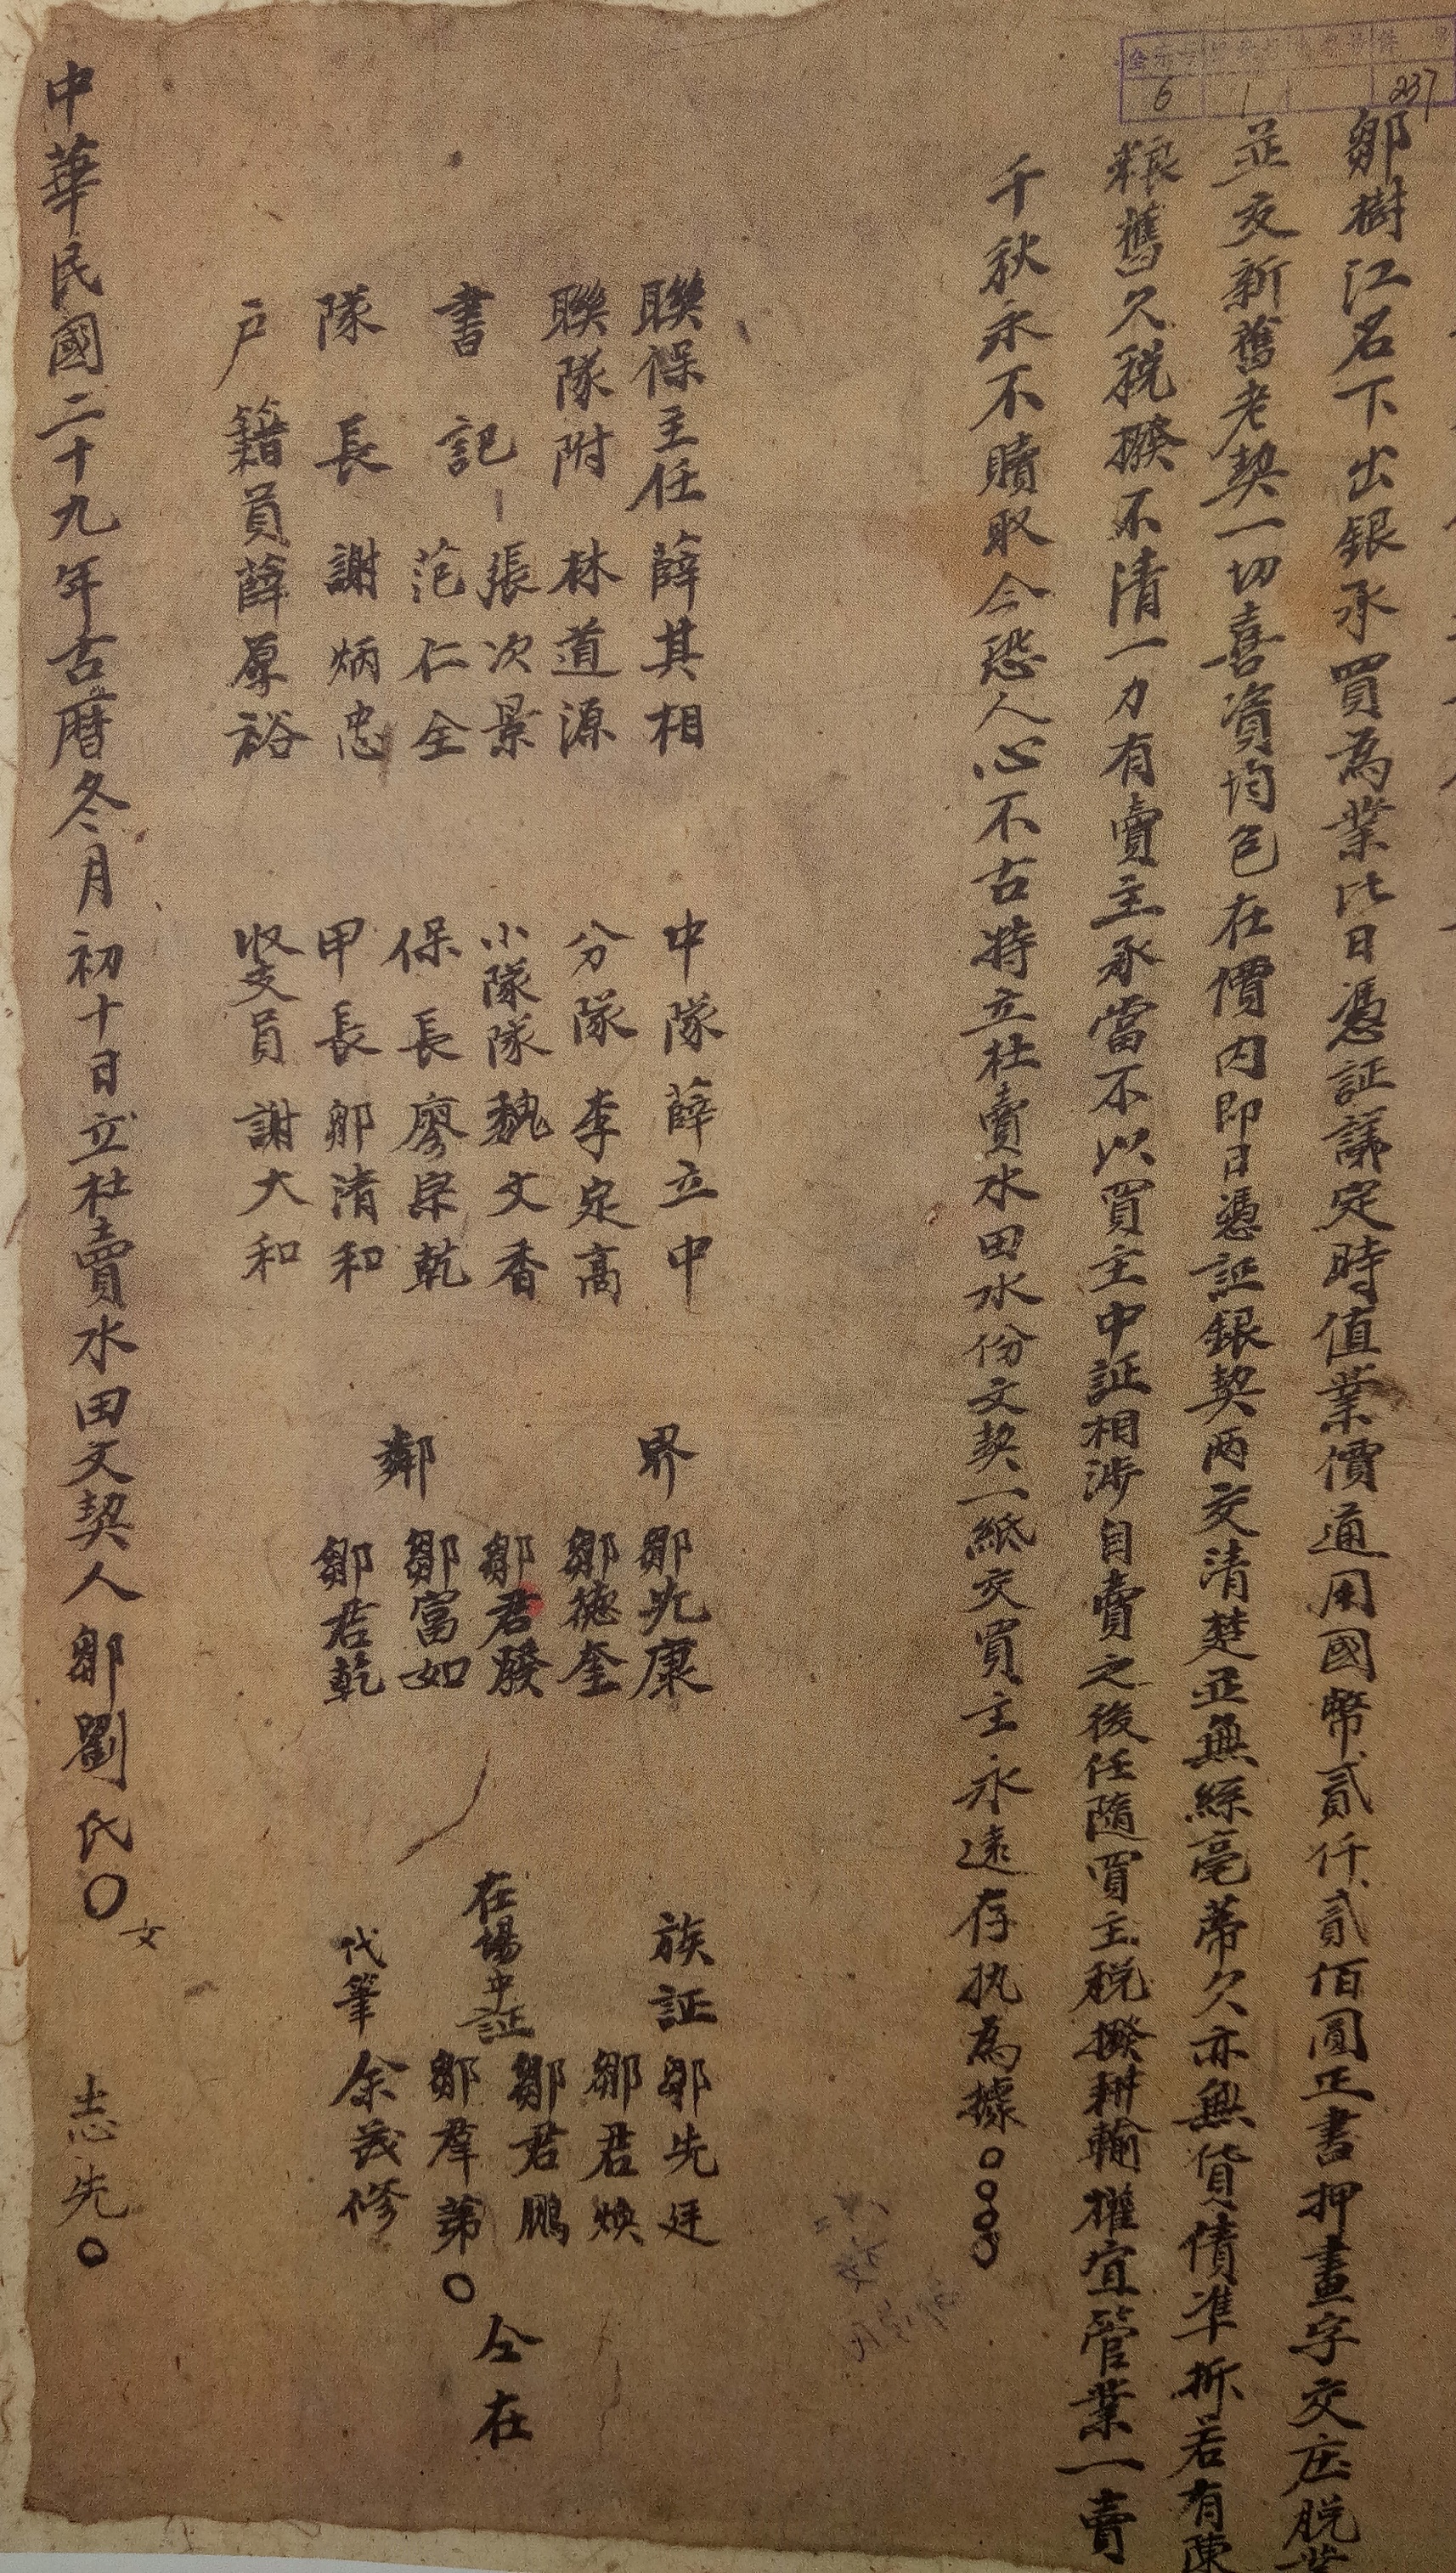 237
6
1
鄒樹江名下出銀承買為業比日憑証議定時值業價通用國幣貳仟貳佰圓正書押畫字交庄脱業
並交新舊老契一切喜資均包在價内即日憑証銀契两交清楚並無絲毫蒂欠亦無貨債準折若有陳
粮舊欠税撥不清一力有賣主承當不以買主中証相涉自賣之後任隨買主税撥耕輸權宜管業一賣
千秋永不贖取今恐人心不古特立杜賣水田水份文契一紙交買主永遠存执為據
聯保主任薛其相
聯隊附林道源
書記張次景
范仁全
隊長謝炳忠
户籍員薛厚裕
中隊薛立中
分隊李定高
小隊隊魏文香
保長廖宗乾
甲長鄒清和
收支員謝大和
界
鄰
鄒先康
鄒德奎
鄒君騤
鄒富如
鄒君乾
族証
鄒先廷
鄒君焕
在場中証
鄒君鵬
鄒羣第
代筆
余茂修
仝在
中華民國二十九年古曆冬月初十日立杜賣水田文契人鄒劉氏
文
志先